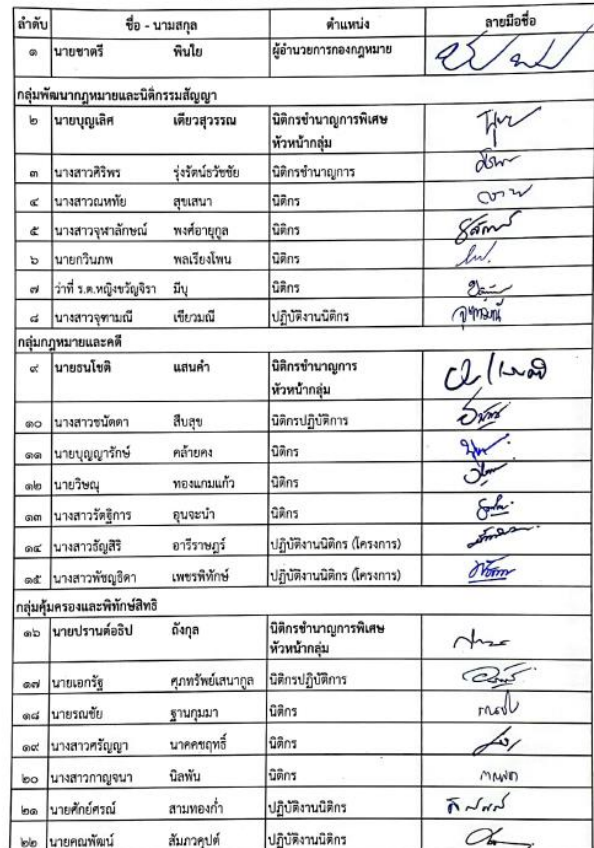 ลำดับ ชื่อ - นามสกุล ตำแหน่ง ลายมือชื่อ
๑ นายชาตรี พินใย ผู้อำนวยการกองกฎหมาย
กลุ่มพัฒนากฎหมายและนิติกรรมสัญญา
๒ นายบุญเลิศ เตียวสุวรรณ นิติกรชำนาญการพิเศษ
หัวหน้ากลุ่ม
๓ นางสาวศิริพร รุ่งรัตน์ธวัชชัย นิติกรชำนาญการ
๔ นางสาวณหทัย สุขเสนา นิติกร
๕ นางสาวจุฬาลักษณ์ พงศ์อายุกูล นิติกร
๖ นายกวินภพ พลเรียงโพน นิติกร
๗ ว่าที่ ร.ต.หญิงขวัญจิรา มีบุ นิติกร
๘ นางสาวจุฑามณี เขียวมณี ปฏิบัติงานนิติกร จุฑามณี
กลุ่มกฎหมายและคดี
๙ นายธนโชติ แสนคำ นิติกรชำนาญการ
หัวหน้ากลุ่ม
๑๐ นางสาวชนัตดา สืบสุข นิติกรปฏิบัติการ
๑๑ นายบุญญารักษ์ คล้ายคง นิติกร
๑๒ นายวิษณุ ทองแกมแก้ว นิติกร
๑๓ นางสาวรัตฐิการ อุนจะนำ นิติกร
๑๔ นางสาวธัญสิริ อารีราษฎร์ ปฏิบัติงานนิติกร (โครงการ)
๑๕ นางสาวพัชญธิดา เพชรพิทักษ์ ปฏิบัติงานนิติกร (โครงการ)
กลุ่มคุ้มครองและพิทักษ์สิทธิ
๑๖ นายปรานต์อธิป ถังกุล นิติกรชำนาญการพิเศษ
หัวหน้ากลุ่ม
๑๗ นายเอกรัฐ ศุภทรัพย์เสนากูล นิติกรปฏิบัติการ
๑๘ นายรณชัย ฐานกุมมา นิติกร
๑๙ นางสาวศรัญญา นาคคชฤทธิ์ นิติกร
๒๐ นางสาวกาญจนา นิลพัน นิติกร
๒๑ นายศักย์ศรณ์ สามทองก่ำ ปฏิบัติงานนิติกร
๒๒ นายคณพัฒน์ สัมภวคุปต์ ปฏิบัติงานนิติกร